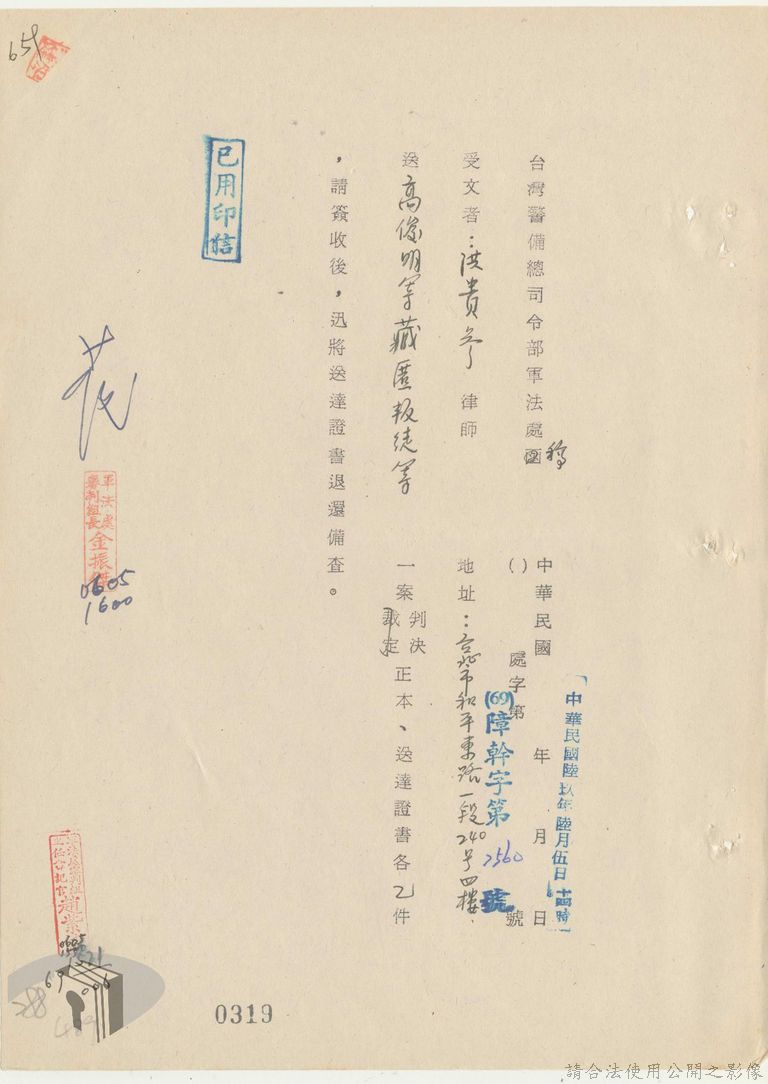 台灣警備總司令部軍法處函稿
中華民國 年 月 日
中華民國陸玖年陸月伍日
( ) 處字第 號
(69)障幹字第2560號
受文者：洪貴叁律師
地址：台北市和平東路一段240号四樓
送高俊明等藏匿叛徒等一案判決裁定正本、送達證書各乙件
，請簽收後，迅將送達證書退還備查。
已用印信
軍法處
審判組長金振
0605
1600
0319
請合法使用公開之影像